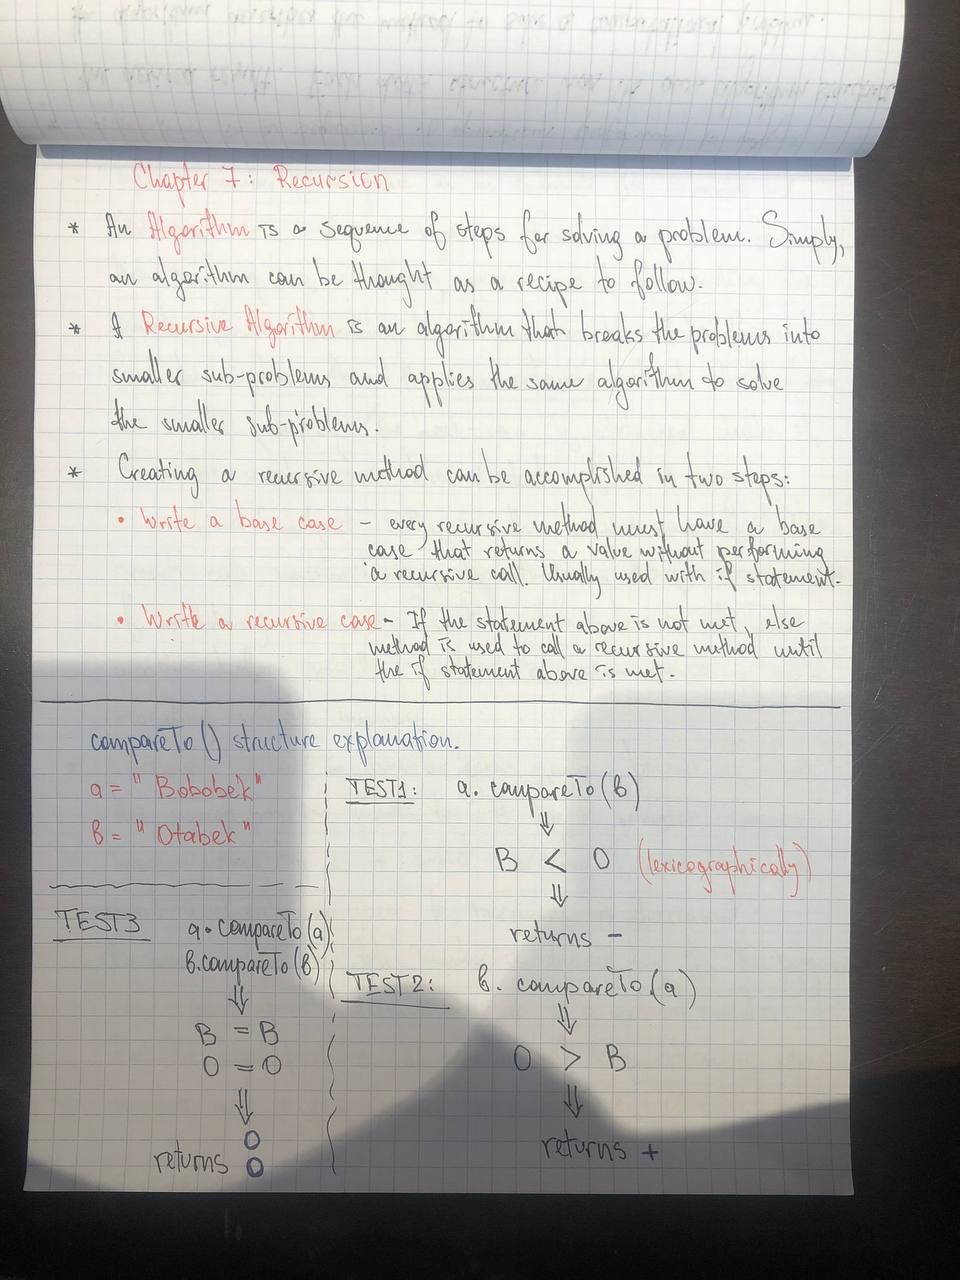 Chapter 7: Recursion
* An Algorithm is a sequence of steps for solving a problem. Simply,
an algorithm can be thought as a recipe to follow.
* A Recursive Algorithm is an algorithm that breaks the problems into
smaller sub-problems and applies the same algorithm to solve
the smaller sub-problems.
* Creating a recursive method can be accomplished in two steps:
• Write a base case - every recursive method must have a base
case that returns a value without performing
a recursive call. Usually used with if statement.
• Write a recursive case - If the statement above is not met, else
method is used to call a recursive method until
the if statement above is met.
compareTo() structure explanation.
a = "Bobobek"
b = "Otabek"
TEST1: a. compareTo(b)
⇓
B < O (lexicographically)
⇓
returns -
TEST2: b. compareTo(a)
⇓
O > B
⇓
returns +
TEST3 a.compareTo(a)
b.compareTo(b)
⇓
B = B
O = O
⇓
0
returns 0